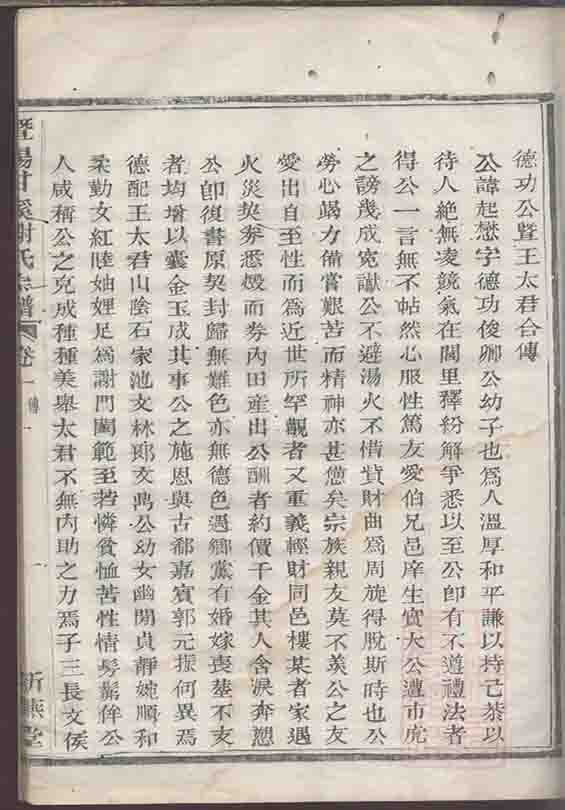 德功公暨王太君合傳
公諱起懋字德功俊卿公幼子也爲人溫厚和平謙以持己恭以
待人絕無凌競氣在閭里釋紛解爭悉以至公卽有不遵禮法者
得公一言無不帖然心服性篤友愛伯兄邑庠生實大公遭市虎
之謗幾成寃獄公不避湯火不惜貲財曲爲周旋得脫斯時也公
勞心竭力備嘗艱苦而精神亦甚憊矣宗族親友莫不羨公之友
愛出自至性而爲近世所罕覯者又重義輕財同邑樓某者家遇
火災契券悉燬而券內田産出公酬者約價千金其人含淚奔愬
公卽復書原契封歸無難色亦無德色遇鄉黨有婚嫁喪塟不支
者均增以囊金玉成其事公之施恩與古郗嘉賓郭元振何異焉
德配王太君山陰石家池文林郎文鼎公幼女幽閒貞靜婉順和
柔勤女紅睦妯娌足爲謝門閫範至若憐貧恤苦性情髣髴侔公
人咸稱公之克成種種美舉太君不無內助之力焉子三長文侯
暨陽甘溪謝氏宗譜 卷一 傳 一